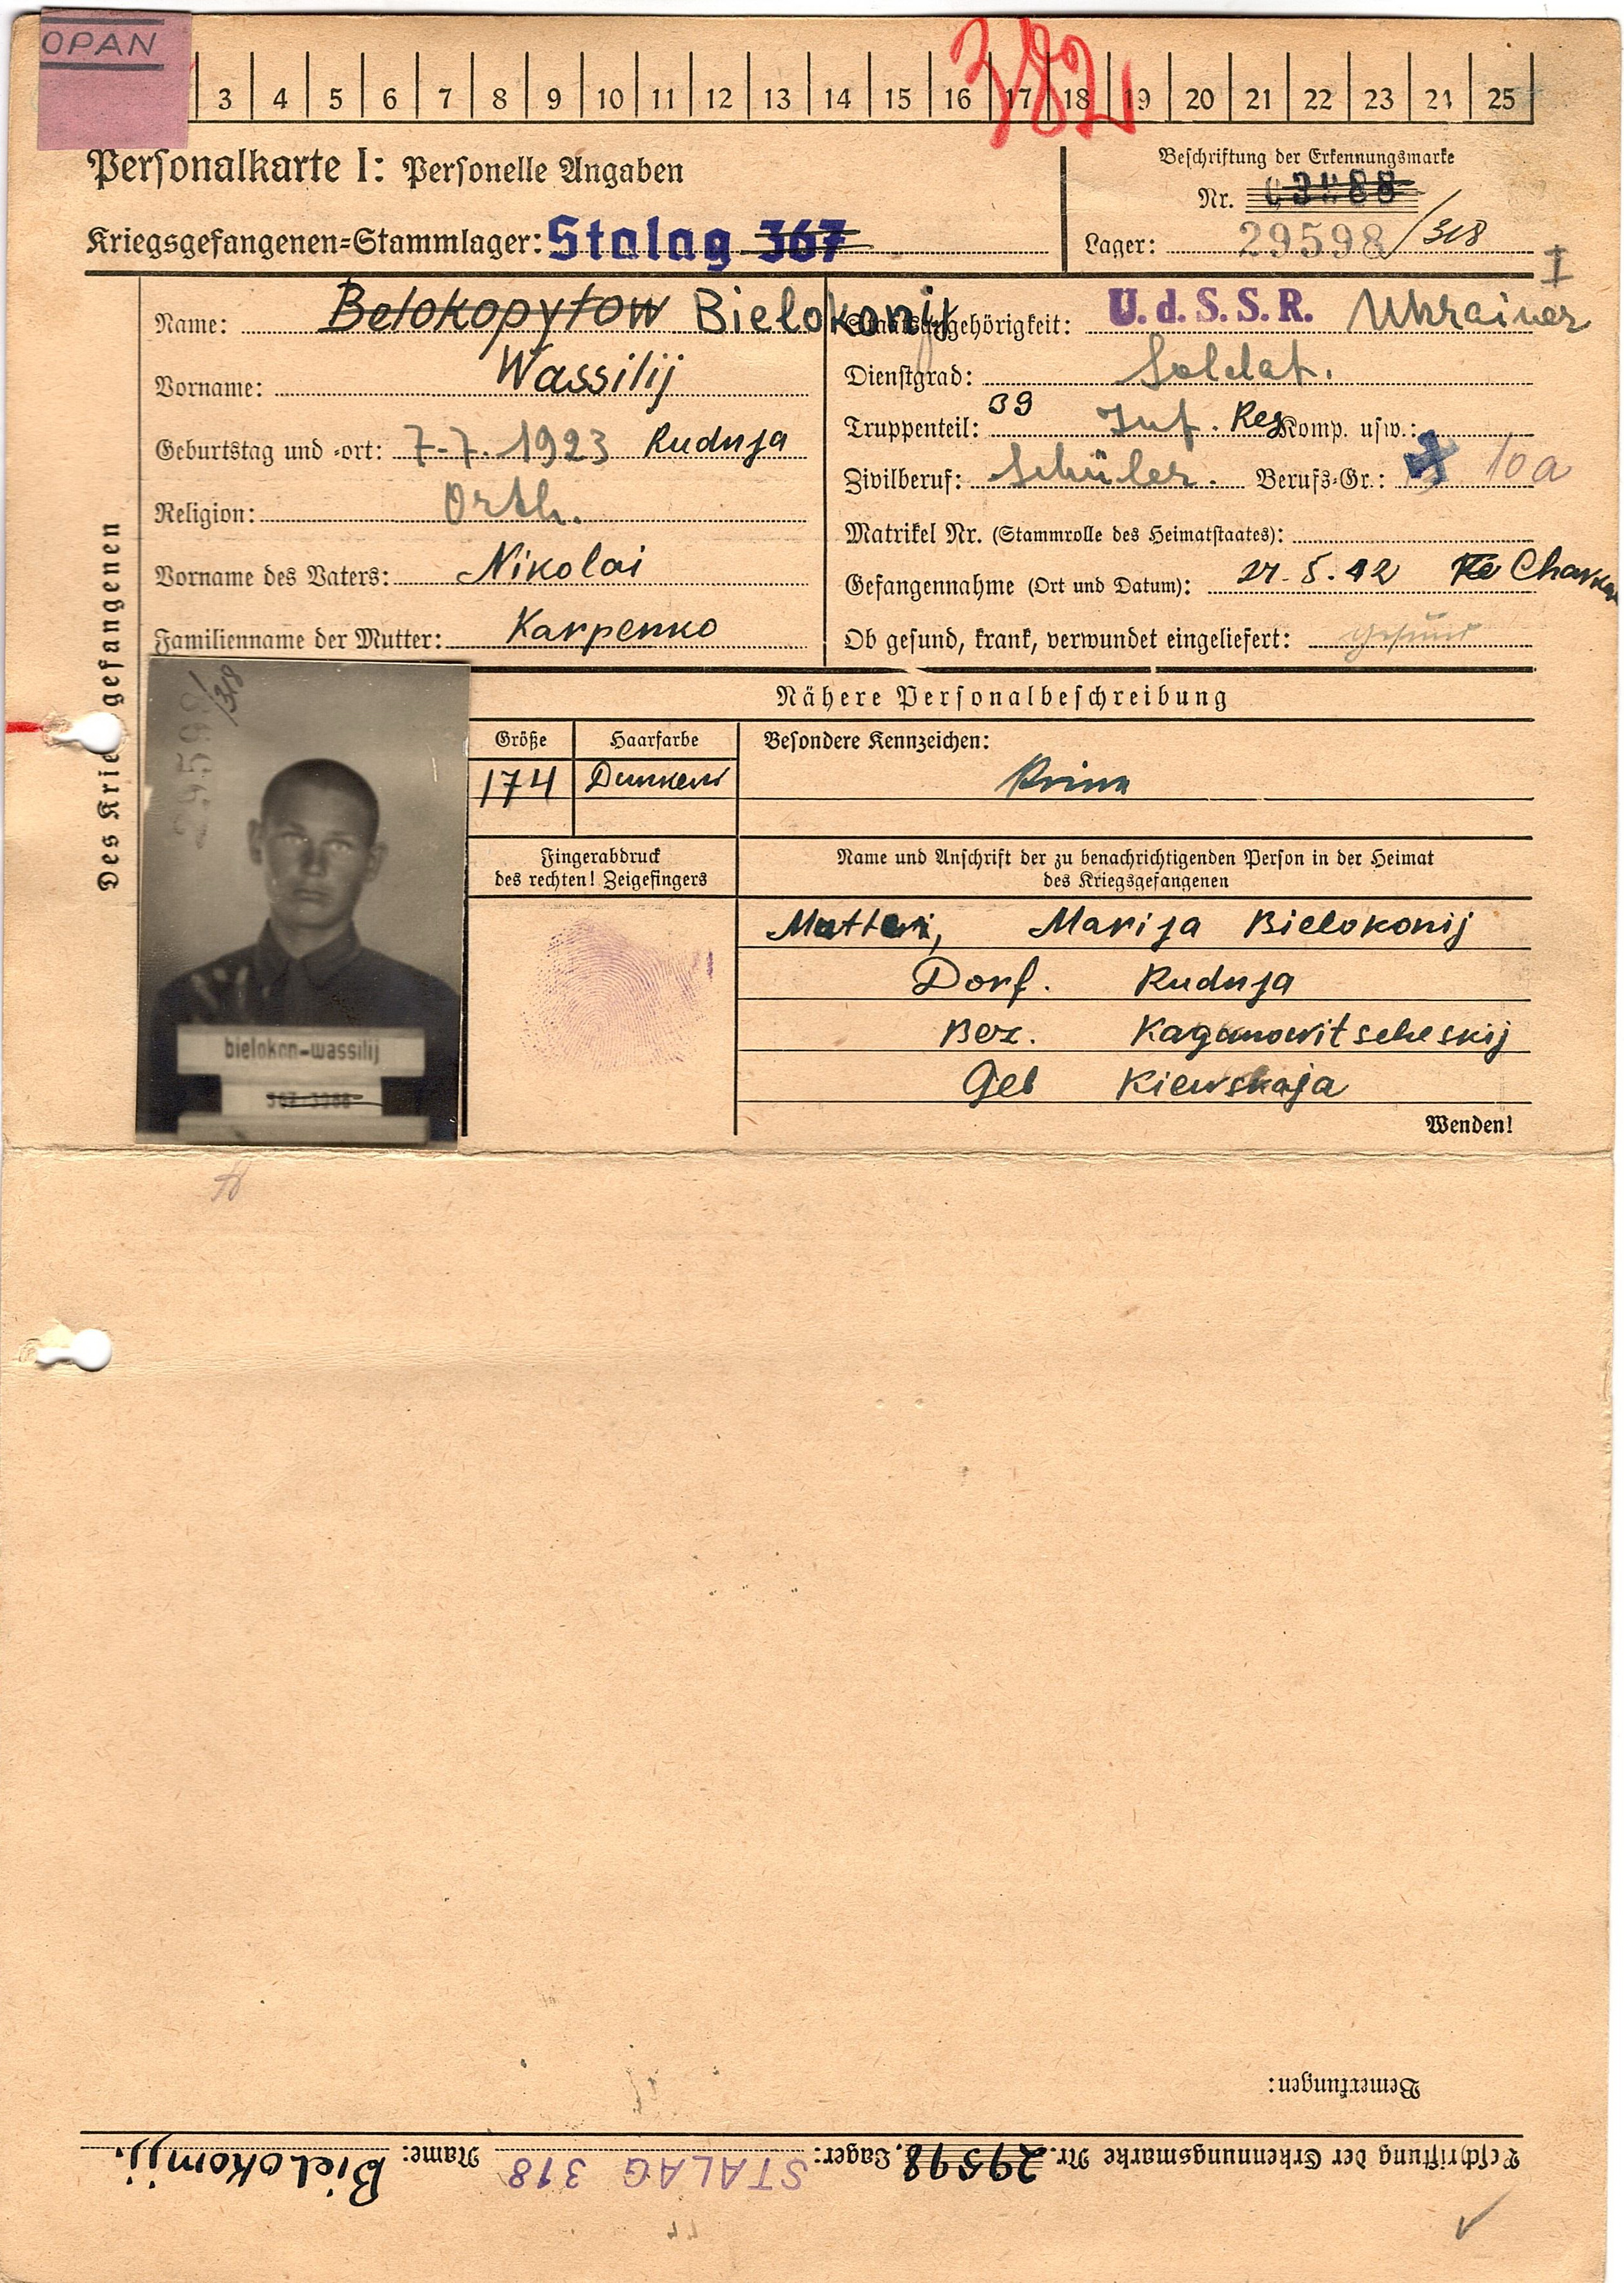 OPAN
382
3 4 5 6 7 8 9 10 11 12 13 14 15 16 17 18 19 20 21 22 23 24 25
Personalkarte I: Personelle Angaben
Kriegsgefangenen-Stammlager: Stalag 367
Beschriftung der Erkennungsmarke
Nr.
Lager: 29598/318
I
Des Kriegsgefangenen
Name: Belokopytow Bielokonij
Vorname: Wassilij
Geburtstag und -ort: 7-7. 1923 Rudnja
Religion: Orth.
Vorname des Vaters: Nikolai
Familienname der Mutter: Karpenko
Staatsangehörigkeit: U.d.S.S.R. Ukrainer
Dienstgrad: Soldat.
Truppenteil: 39 Inf. Reg Komp. usw.:
Zivilberuf: Schüler. Berufs-Gr.: 10a
Matrikel Nr. (Stammrolle des Heimatstaates):
Gefangennahme (Ort und Datum): 27.5.42 Charkow
Ob gesund, krank, verwundet eingeliefert: gesund
29598/318
bielokon-wassilij
367-3988
Nähere Personalbeschreibung
Größe Haarfarbe Besondere Kennzeichen:
174
Fingerabdruck
des rechten! Zeigefingers
Name und Anschrift der zu benachrichtigenden Person in der Heimat
des Kriegsgefangenen
Marija Bielokonij
Dorf. Rudnja
Bez. Kaganowitscheskij
Geb Kiewskaja
Wenden!
Bemerkungen:
Beschriftung der Erkennungsmarke Nr. 29598 Lager: STALAG 318 Name: Bielokonij.